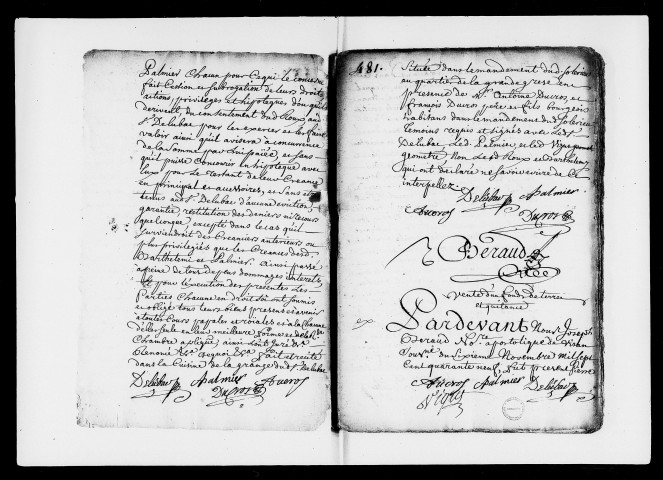 Palmier Chacun pour Ce qui le concerne
fait Cession et subrogation de leurs droits
actions privileges et hipoteques d'en qu'ils
derivent, du consentement dud Roux aud
Sr Delubac pour les exercer et les faire
valoir ainsi qu'il avisera a concurrence
de la Somme par luy payée, et sans
qu'il puisse Concourir en hipoteque avec
eux pour le Restant de leur Creance
en principal et accessoires, et sans estre
tenus aud Sr Delubac d'aucune eviction,
garantie, restitution des deniers ni recours
quelconque, excepté dans le cas qu'il
surviendroit des Creanciers anterieurs ou
plus privilegiés que les Creances desd.
Barthelemi et Palmier, ainsi passé
a peine de tous depens dommages interets
Et pour l'execution des presentes Les
Parties Chacune en droit soi ont soumis
et obligé tous leurs biens presents et avenir
a toutes Cours rapales et roiales et a la Chacune
d'elles seule en leur meilleure forme et de la
Chambre aplique, ainsi l'ont Juré &a
Renoncé &a auquoi &a fait et recité
dans la Cuisine de la grange dud Sr Delubac
Delubac Palmier Averos
Duros
481.
Située dans le mandement dud Solerieu
au quartier de la grande grese en
presence de Mr. Antoine Duros et
françois Duros pere et fils bourgeois
habitans dans le mandement dud Solerieu
temoins requis et signés avec Led Sr
Delubac, Led. Palmier, et led Vigne
geometre Non Led Roux et Barthelemy
qui ont declaré ne savoir ecrire de Ce
interpellés
Delubac Palmier
Averos Duros
Beraud
Vente d'un fonds de terre
et quitance
Pardevant Nous Joseph
Beraud Nore apostolique de Visan
Souss.né du Sixieme Novembre Mil Sept
Cent quarante neuf fut present Pierre
Averos Palmier Delubac